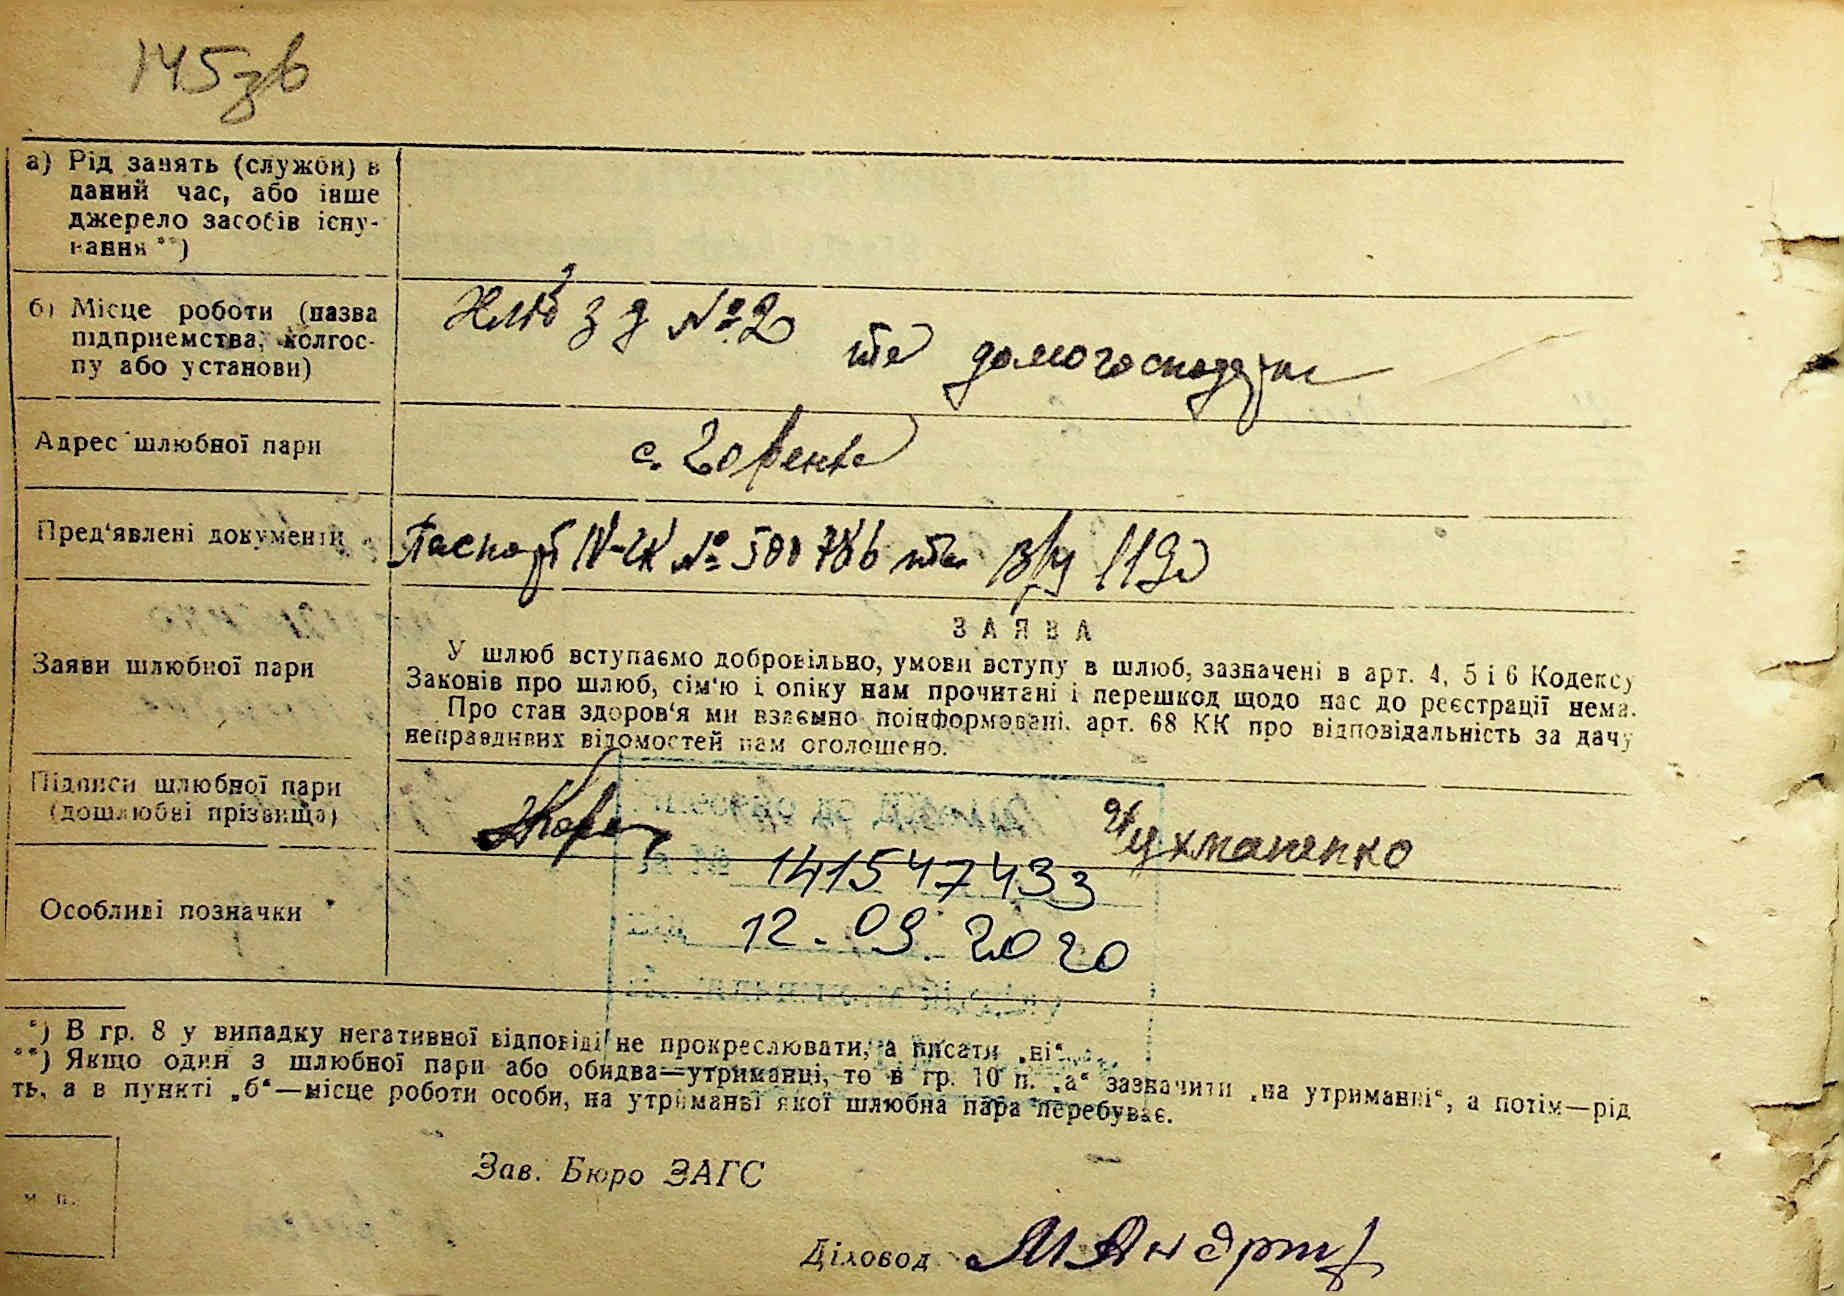 145зв
а) Рід занять (служби) в
даний час, або інше
джерело засобів існу-
вання **)
б) Місце роботи (назва
підприємства, колгос-
пу або установи)
з д №2
та домогосподарка
Адрес шлюбної пари
с. Горенка
Пред'явлені документи
Паспорт IV-ІК № 500786 та в/к 1190
Заяви шлюбної пари
ЗАЯВА
У шлюб вступаємо добровільно, умови вступу в шлюб, зазначені в арт. 4, 5 і 6 Кодексу
Законів про шлюб, сім'ю і опіку нам прочитані і перешкод щодо нас до реєстрації нема.
Про стан здоров'я ми взаємно поінформовані. арт. 68 КК про відповідальність за дачу
неправдивих відомостей нам оголошено.
Підписи шлюбної пари
(дошлюбні прізвища)
Чухманенко
Особливі позначки
141547433
12.09.2020
*) В гр. 8 у випадку негативної відповіді не прокреслювати, а писати „ні“
**) Якщо один з шлюбної пари або обидва—утриманці, то в гр. 10 п. „а“ зазначити „на утриманні“, а потім—рід
ть, а в пункті „б“—місце роботи особи, на утриманні якої шлюбна пара перебуває.
м. п.
Зав. Бюро ЗАГС
Діловод